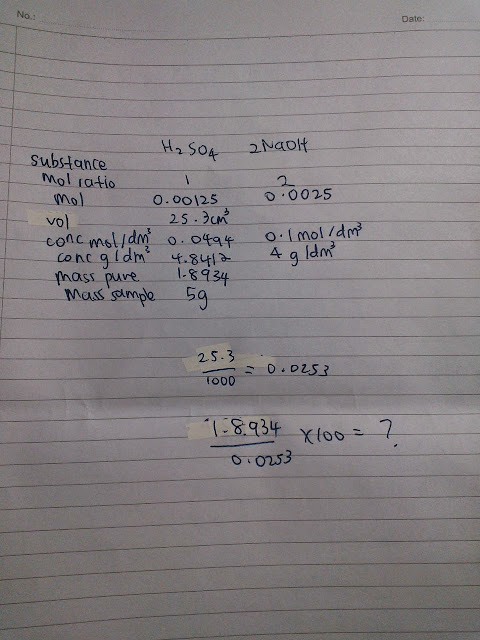 No.:
Date:
H₂SO₄ 2NaOH
Substance
Mol ratio 1 2
mol 0.00125 0.0025
vol 25.3cm³
conc mol/dm³ 0.0494 0.1 mol/dm³
conc g/dm³ 4.8412 4 g/dm³
mass pure 1.8934
Mass sample 5g
25.3
1000 = 0.0253
1.8934 x100 = ?
0.0253